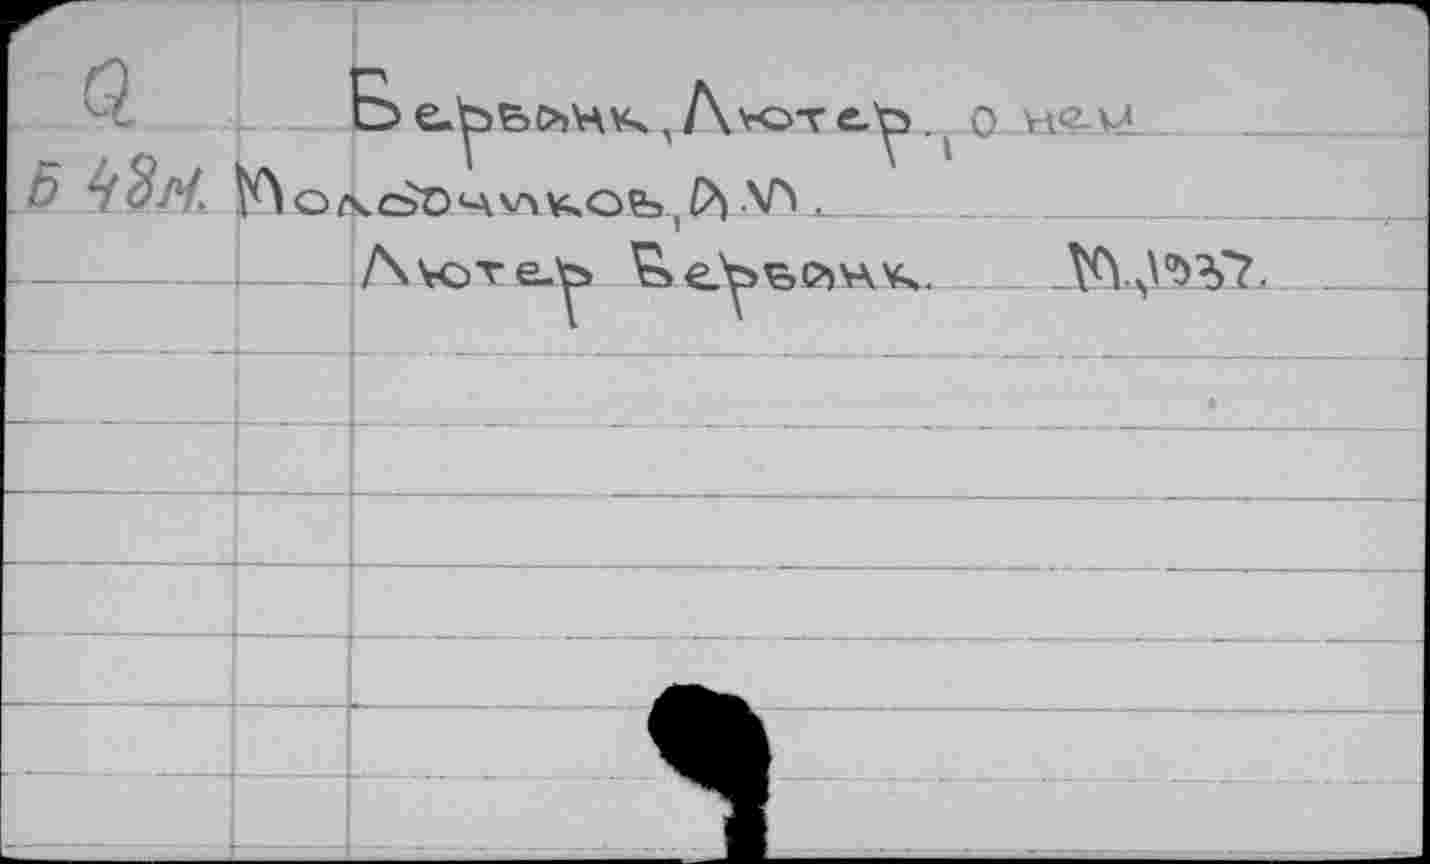 Q Бербанк, Лютер., о нем
Б 48м. Молодчиков, А.И.
Лютер Бербанк. М., 1937.